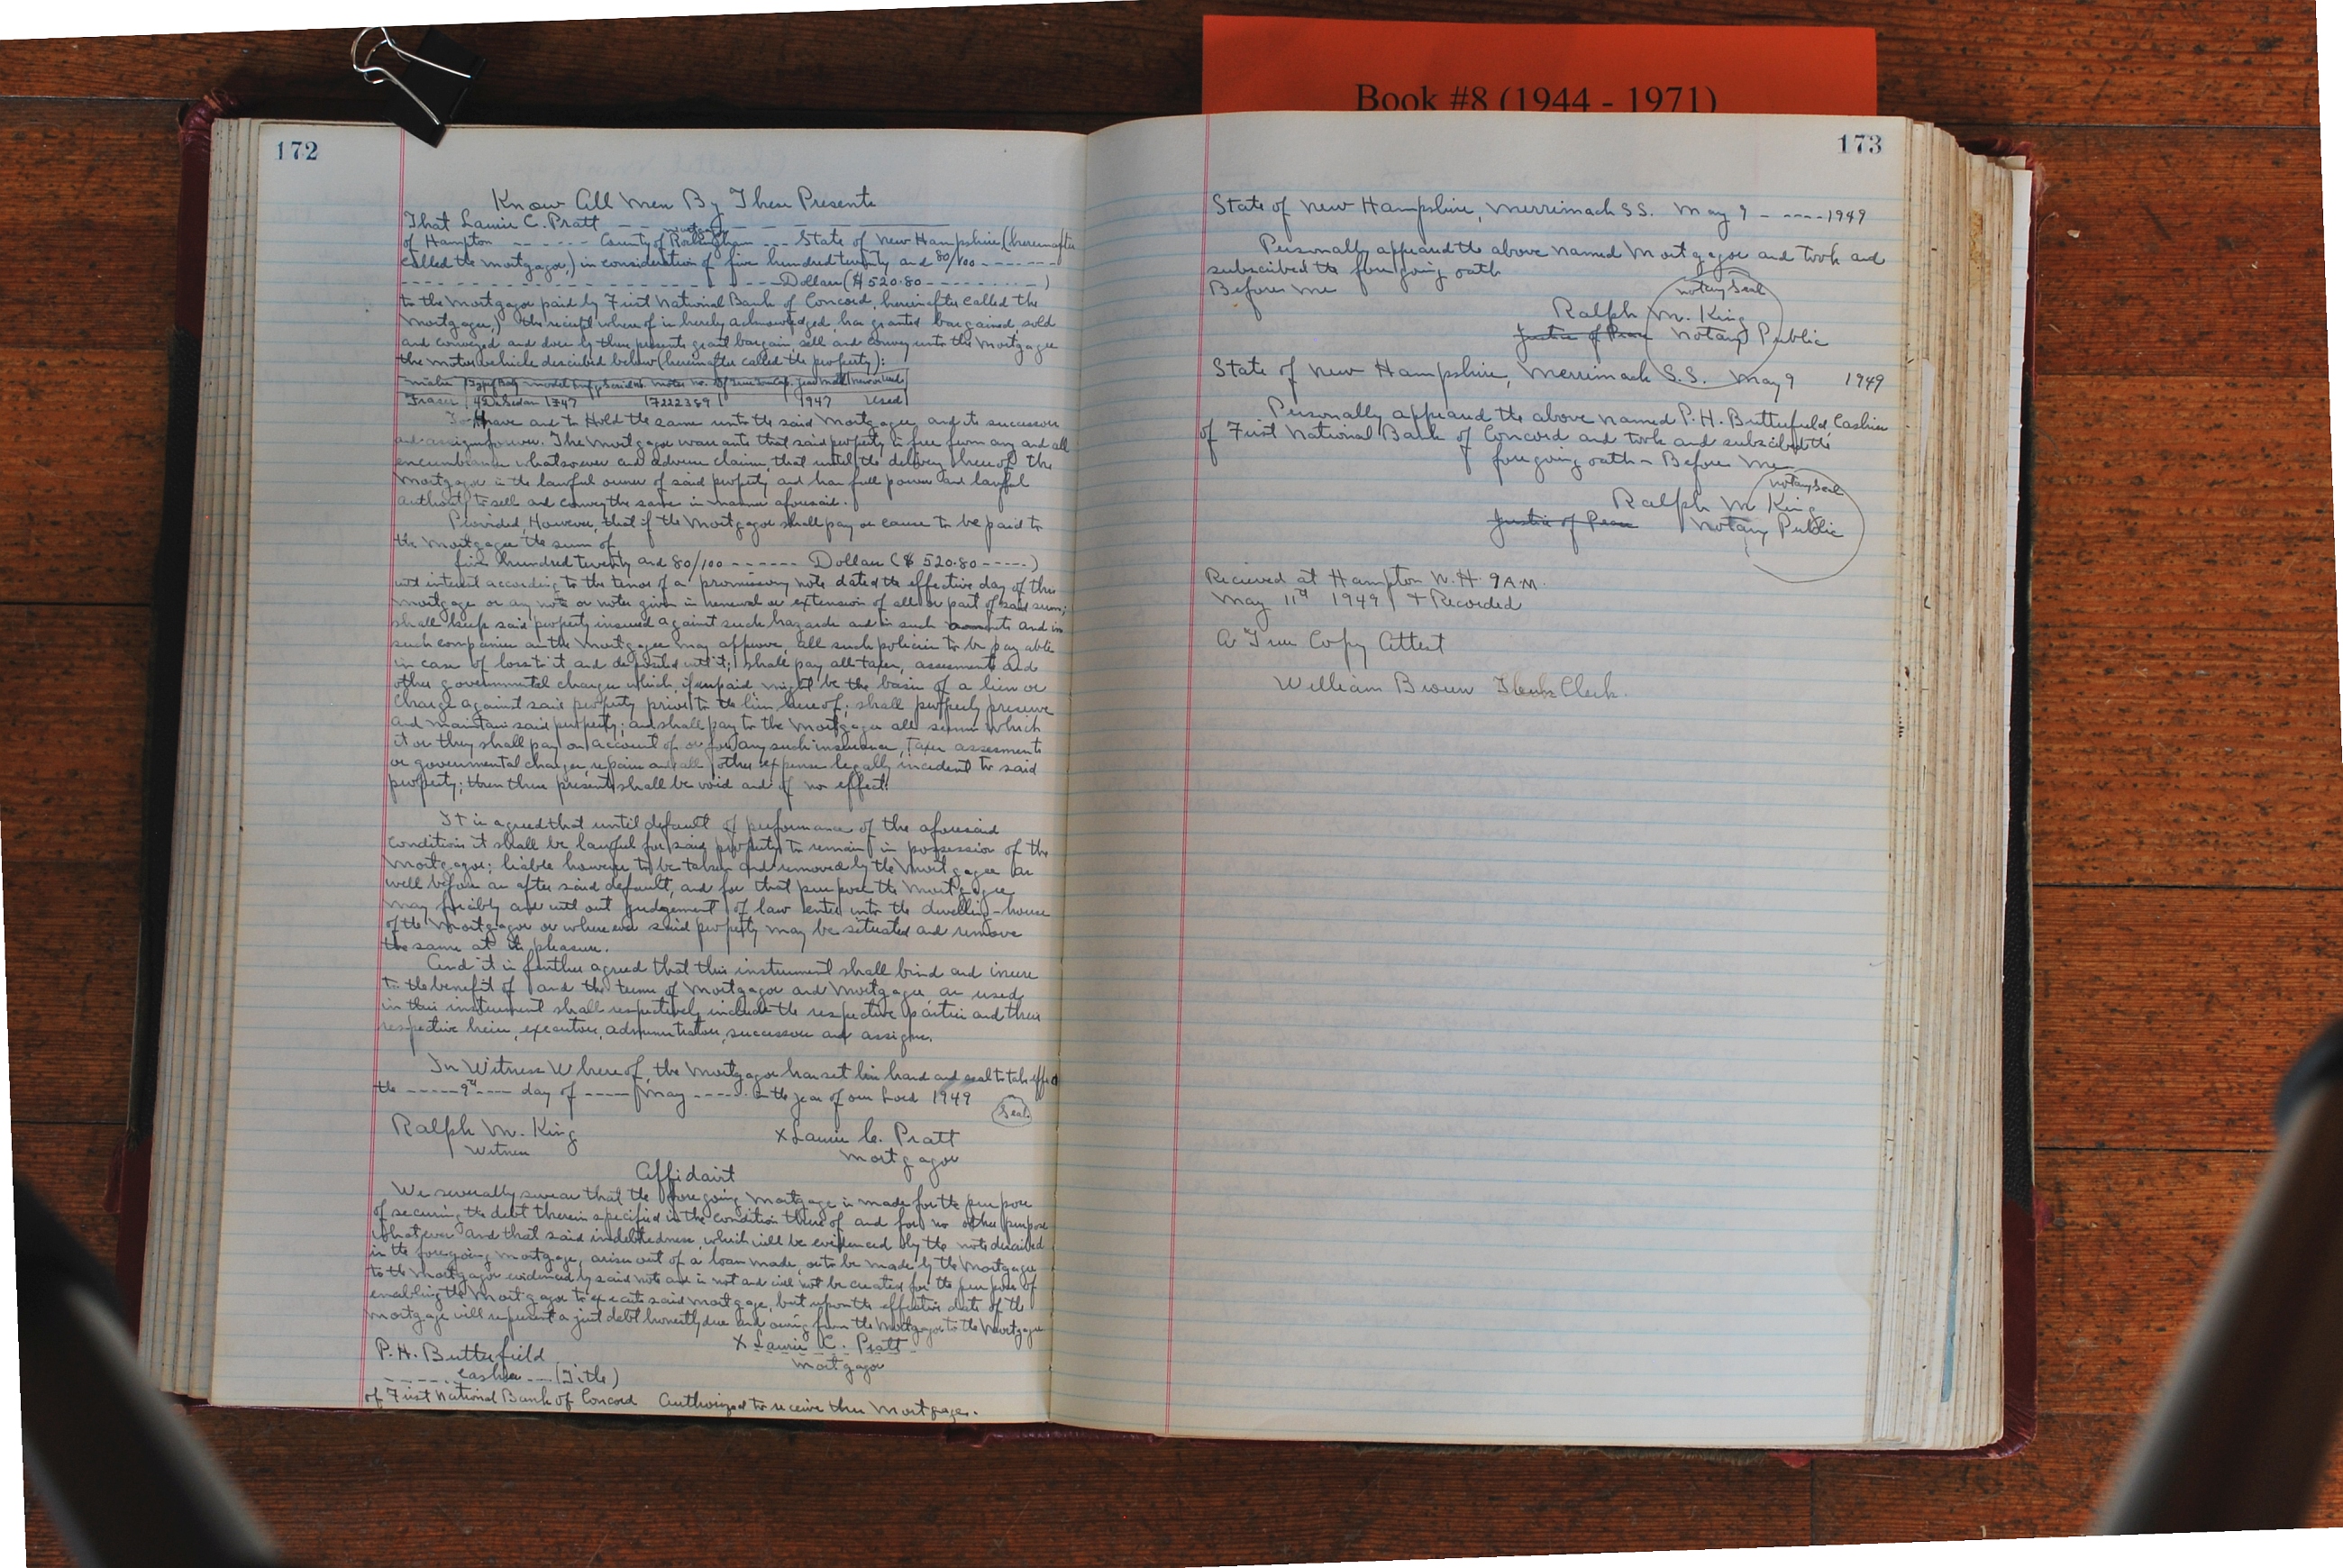 Book #8 (1944 - 1971)
172
Know All Men By These Presents
That Laurie C. Pratt
of Hampton ------ County of Rockingham --- State of New Hampshire (hereinafter
called the mortgagor,) in consideration of five hundred twenty and 80/100 -------
Dollars ($520.80 ----------)
to the Mortgagor paid by First National Bank of Concord, hereinafter called the
Mortgagee,) the receipt where of is hereby acknowledged, has granted bargained, sold
and conveyed and does by these presents grant bargain, sell and convey unto the Mortgagee
the motor vehicle described below (hereinafter called the property):
Make Type of Body Model Serial No. Motor No. Year Model New or Used
Frazer 4 Dr Sedan F47 F222389 1947 Used
To Have and to Hold the same unto the said Mortgagee, and its successors
and assigns forever. The Mortgagor warrants that said property is free from any and all
encumbrances whatsoever and adverse claims, that until the delivery here of the
Mortgagor is the lawful owner of said property and has full power and lawful
authority to sell and convey the same in manner aforesaid.
Provided, However, that if the Mortgagor shall pay or cause to be paid to
the Mortgagee the sum of
five hundred twenty and 80/100 ------ Dollars ($ 520.80 -----)
with interest according to the tenor of a promissory note dated the effective day of this
mortgage or any note or notes given in renewal or extension of all or part of said sum;
shall keep said property insured against such hazards and in such amounts and in
such companies as the Mortgagee may approve, all such policies to be pay able
in case of loss to it and deposited with it; shall pay all taxes, assesments and
other governmental charges which, if unpaid might be the basis of a lien or
charge against said property prior to the lien here of; shall properly preserve
and maintain said property; and shall pay to the Mortgagee all sums which
it or they shall pay on account of or for any such insurance, taxes assesments
or governmental charges, repairs and all other expense legally incident to said
property; then these presents shall be void and of no effect.
It is agreed that until default of performance of the aforesaid
condition it shall be lawful for said property to remain in possession of the
Mortgagor; liable however to be taken and removed by the Mortgagee as
well before as after said default, and for that purpose the Mortgagee
may forcibly and with out judgement of law enter into the dwelling-house
of the Mortgagor or where ever said property may be situated and remove
the same at its pleasure.
And it is further agreed that this instrument shall bind and inure
to the benefit of and the terms of Mortgagor and Mortgagee as used
in this instrument shall respectively include the respective parties and their
respective heirs, executors, administrators, successors and assigns.
In Witness Where of, the Mortgagor has set his hand and seal to take effect
the -----9th---- day of -----May ------ in the year of our Lord 1949
Seal
Ralph M. King
Witness
x Laurie C. Pratt
Mortgagor
Affidavit
We severally swear that the foregoing Mortgage is made for the purpose
of securing the debt therein specified in the condition there of and for no other purpose
whatever and that said indebtedness, which will be evidenced by the note described
in the foregoing mortgage, arises out of a loan made, or to be made by the Mortgagee
to the Mortgagor evidenced by said note and is not and will not be created for the purpose of
enabling the Mortgagor to execute said mortgage, but upon the effective date of the
mortgage will represent a just debt honestly due and owing from the Mortgagor to the Mortgagee
P. H. Butterfield
Cashier --- (Title)
x Laurie C. Pratt
Mortgagor
of First National Bank of Concord Authorized to receive this Mortgage.
173
State of New Hampshire, Merrimack SS. May 9 -----1949
Personally appeared the above named Mortgagor and took and
subscribed the foregoing oath
Before Me
notary Seal
Ralph M. King
Justice of Peace Notary Public
State of New Hampshire, Merrimack S.S. May 9 1949
Personally appeared the above named P. H. Butterfield, Cashier
of First National Bank of Concord and took and subscribed the
foregoing oath - Before Me
notary Seal
Ralph M King
Justice of Peace Notary Public
Recieved at Hampton N. H. 9 A.M.
May 11th 1949 & Recorded
A True Copy Attest
William Brown Clerk.